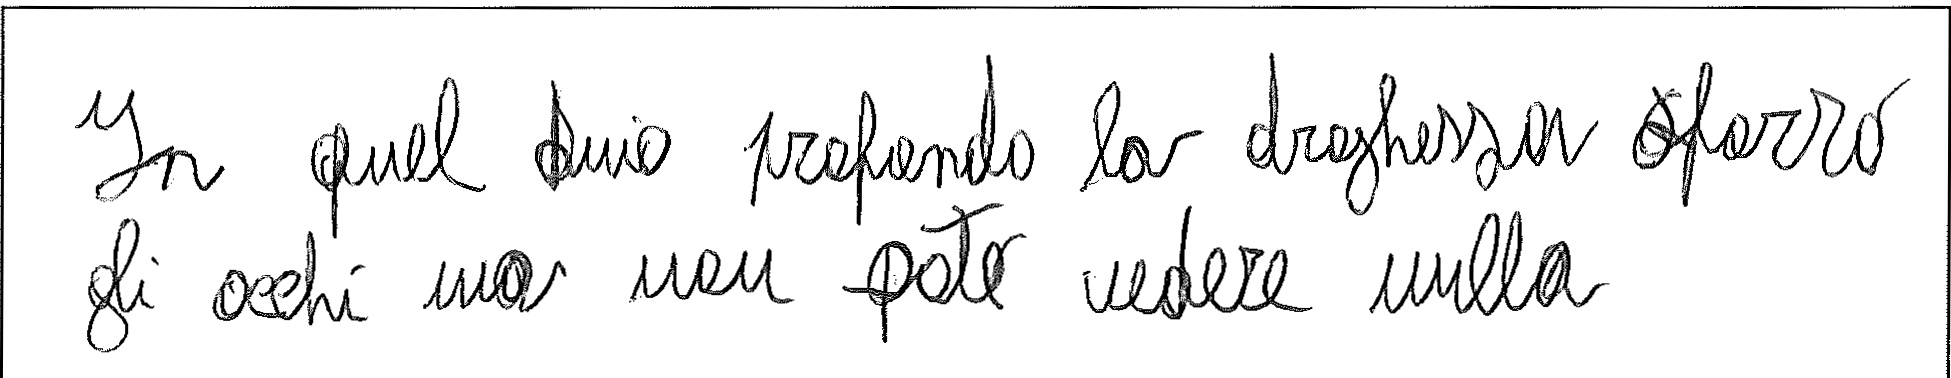 In quel buio profondo la draghessa
gli occhi ma non poté vedere nulla